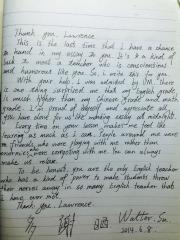 Thank you, Lawrence
This is the last time that I have a chance
to hand in my essay to you. It's a kind of
luck to meet a teacher who is conscientious
and humorous like you. So, I write this for you.
With your help, I was admitted by UM. There
is one thing surprised me that my English grade
is much higher than my Chinese grade and math
grade. I'm proud of myself and appreciate all
you have done for us like marking essay at midnight.
Every time on your lesson makes me feel like
learning as much as I can. People around me were
friends, who were playing with me rather than
enemies, were competing with me. You can always
make us relax.
To be honest, you are the only English teacher
who has a kind of power to make students throw
their nerves away in so many English teacher that
we have ever met.
Thank you, Lawrence.
Walter. Su
2014.6.8.